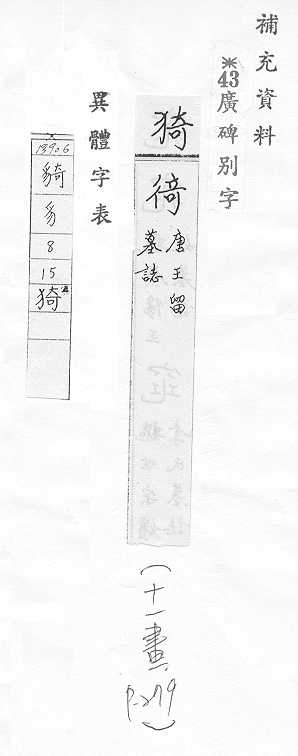 補充資料
※43廣碑別字
猗
徛
唐王留
墓誌
(十一畫
P.279)
異體字表
13906
豸奇
豸
8
15
猗